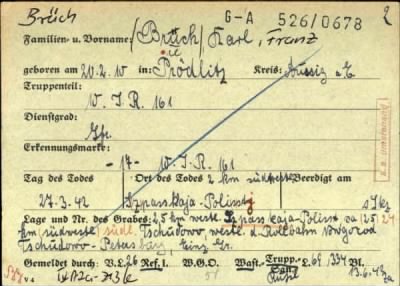 Brüch G-A 526/0678 2
Familien- u. Vorname: (Brück) Karl, Franz
geboren am 20.2.10 in: Prödlitz Kreis: Aussig a.E
Truppenteil:
W. I.R. 161
Dienstgrad:
Gfr.
Erkennungsmarke:
-17- W. I.R. 161
Tag des Todes Ort des Todes 2 km südwestl Beerdigt am
27.3.42 Szpasskaja-Polissj
Lage und Nr. des Grabes: 2,5 km westl. Szpasskaja-Polissj
km (südwestl) südl. Tschudowo, westl. d. Rollbahn Nowgorod
Tschudowo-Petersburg, Einz Gr.
Gemeldet durch: V.L. 26 Ref. I. W.G.O. Wast- Trupp.-L. 69 /334 Bl.
13.6.43